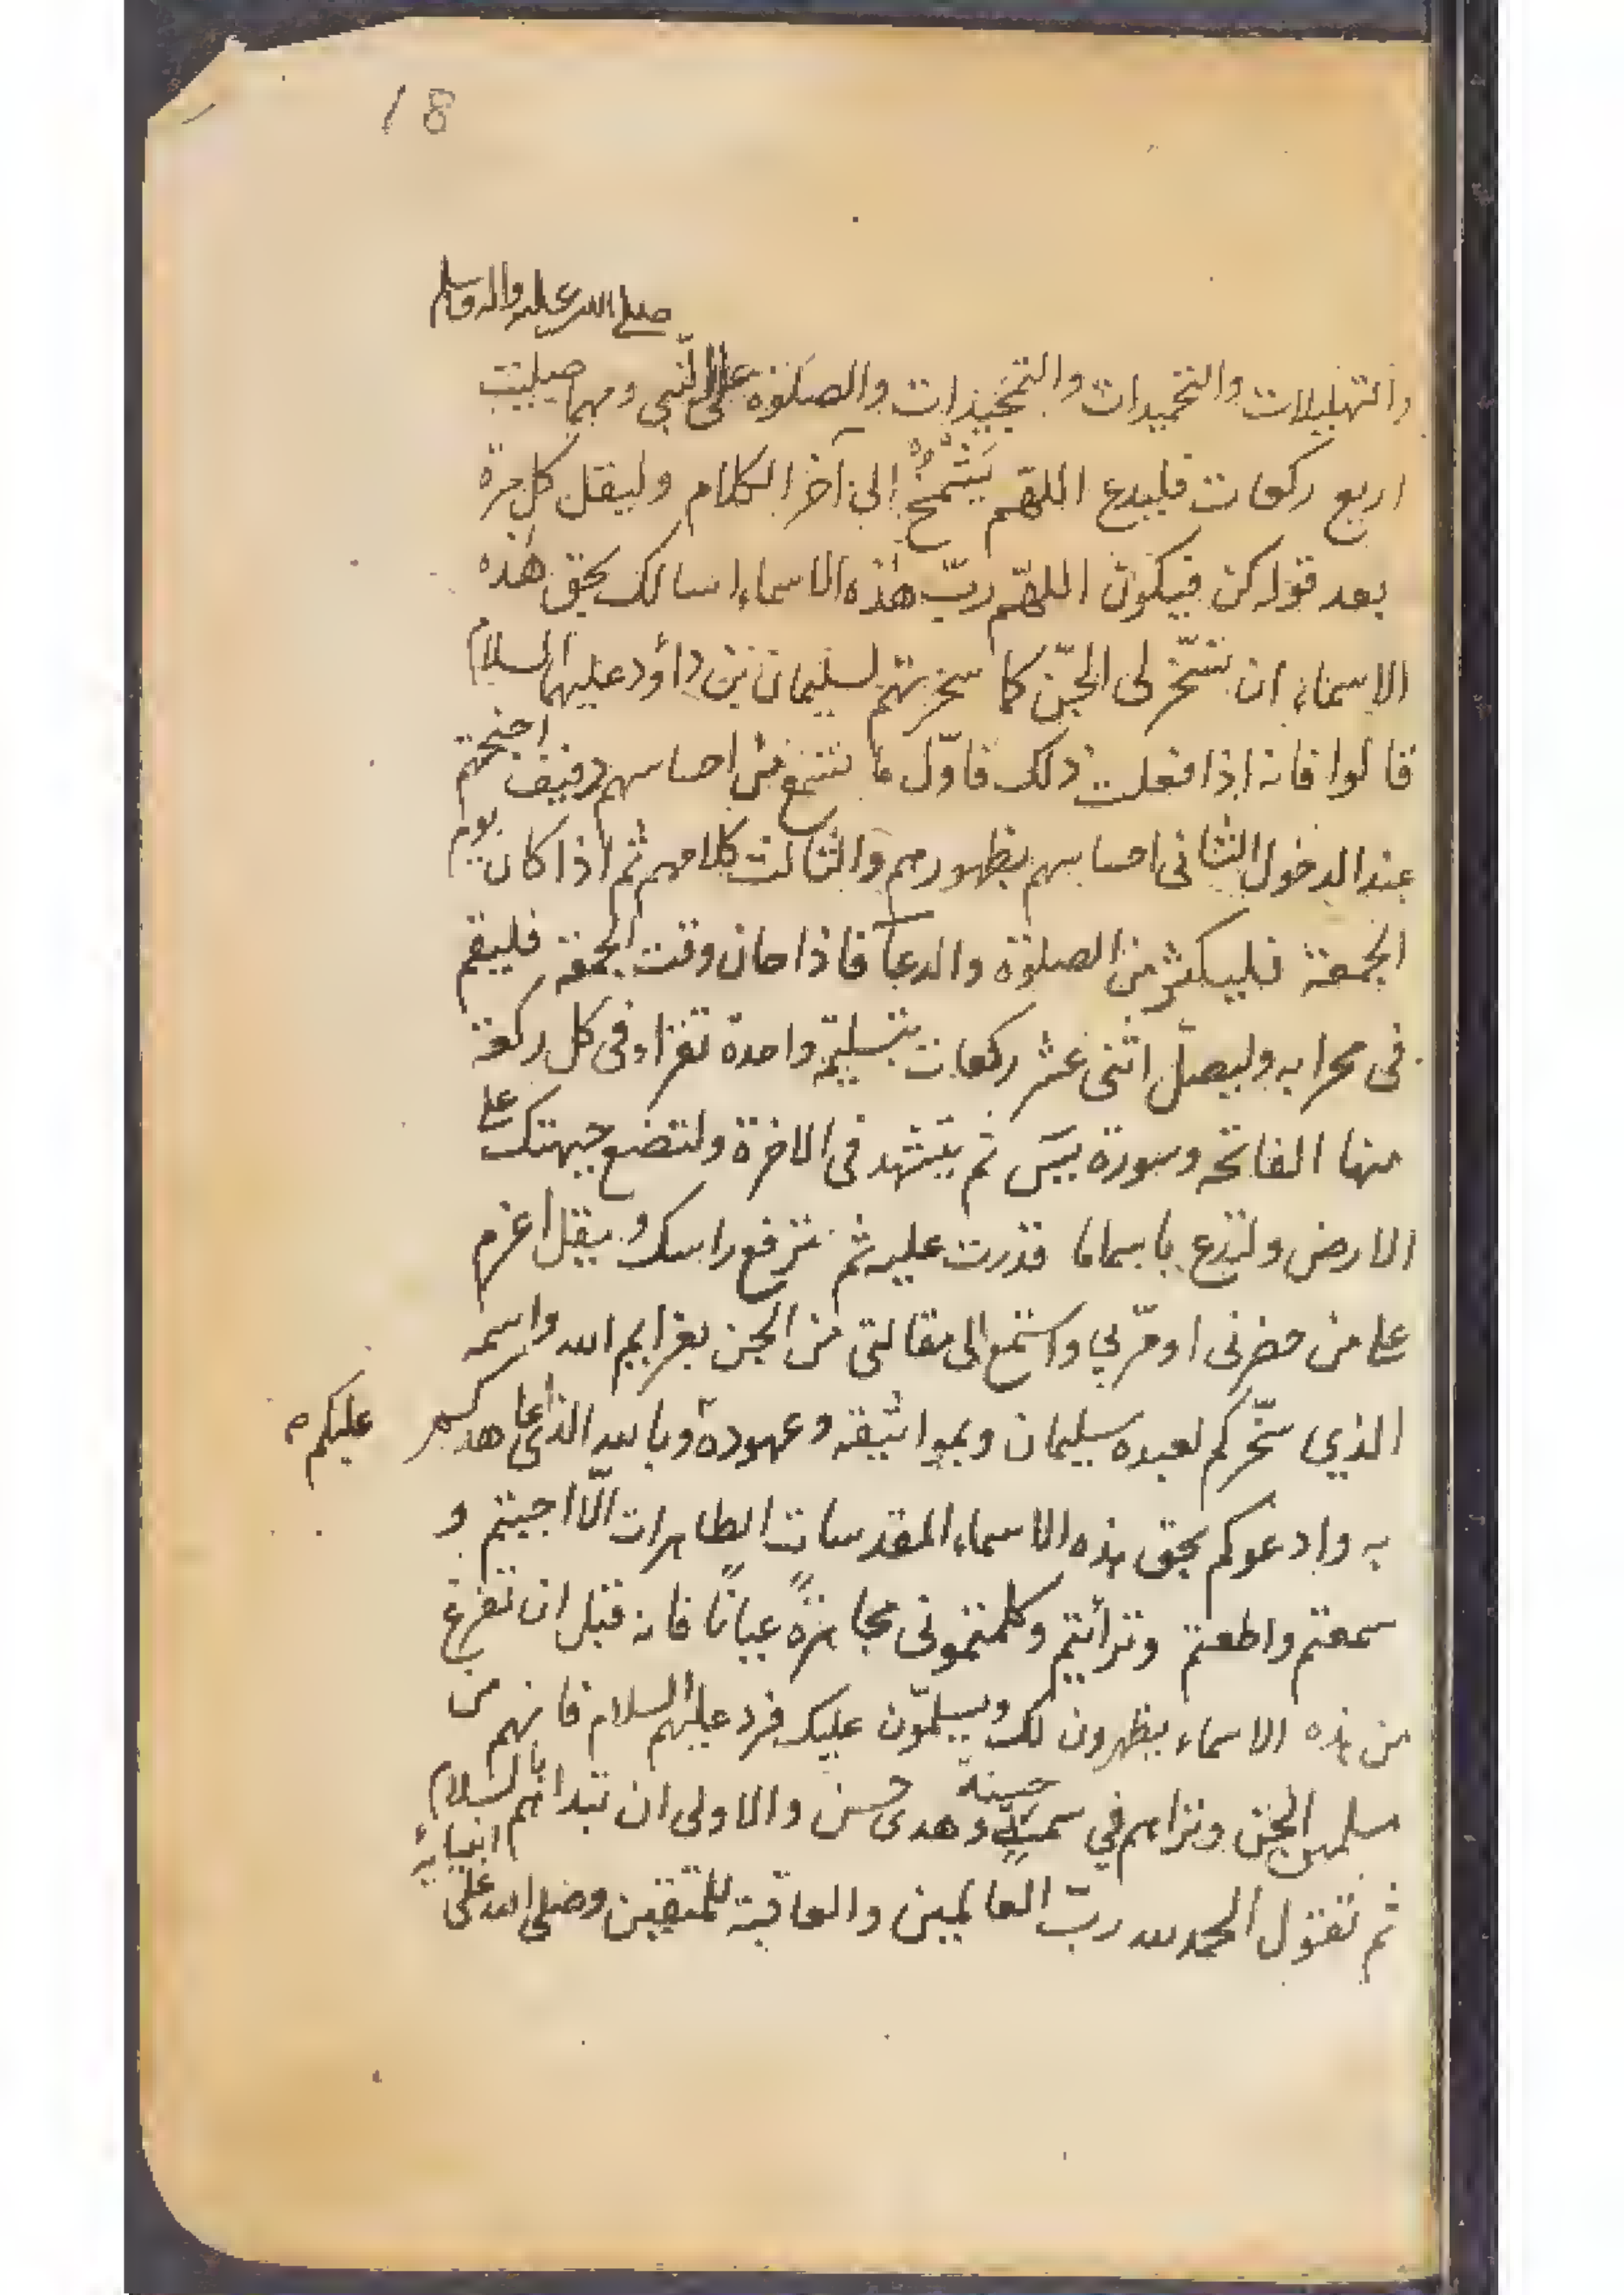 18
صلى الله عليه واله وسلم
والتهليلات والتحميدات والتمجيدات والصلوة على النبي ومهما صليت
اربع ركعات فليدع اللهم يَشْمَخُ الى آخر الكلام وليقل كل مرة
بعد قوله كن فيكون اللهم ربّ هذه الاسماء اسالك بحق هذه
الاسماء ان تسخّر لى الجنّ كما سخرتهم لسليمان بن داؤد عليهما السلام
قالوا فانه اذا فعلت ذلك فاوّل ما تسمع من احساسهم دفيف اجنحتهم
عند الدخول الثانى احساسهم بظهورهم والثالث كلامهم ثم اذا كان يوم
الجمعة فليكثر من الصلوة والدعآ فاذا حان وقت الجمعة فليقم
فى محرابه وليصلّ اثنى عشر ركعات بتسليمة واحدة تقراء فى كل ركعة
منها الفاتحه وسورة يس ثم يتشهد فى الاخرة ولتضع جبهتك على
الارض ولتدع باسماما قدرت عليه ثم ترفع راسك ويقل اعزم
على من حضرنى او مرّ بي واستمع الى مقالتى من الجن بعزايم الله واسمه
الذي سخّركم لعبده سليمان وبمواثيقه وعهوده وبالله الذى عاهدكم عليكم
به وادعوكم بحق هذه الاسماء المقدسات الطاهرات الّا اجبتم و
سمعتم واطعتم وترأيتم وكلمتمونى مجاهرةً عيانًا فانه قبل ان تفرغ
من هذه الاسماء يظهرون لك ويسلّمون عليك فرد عليهم السلام فانهم من
مسلمى الجن وتراهم في سمتٍ حسنة وهدى حسن والاولى ان تبداهم بالسلام
ثم تقول الحمد لله ربّ العالمين والعاقبة للمتقين وصلى الله على انبيائه